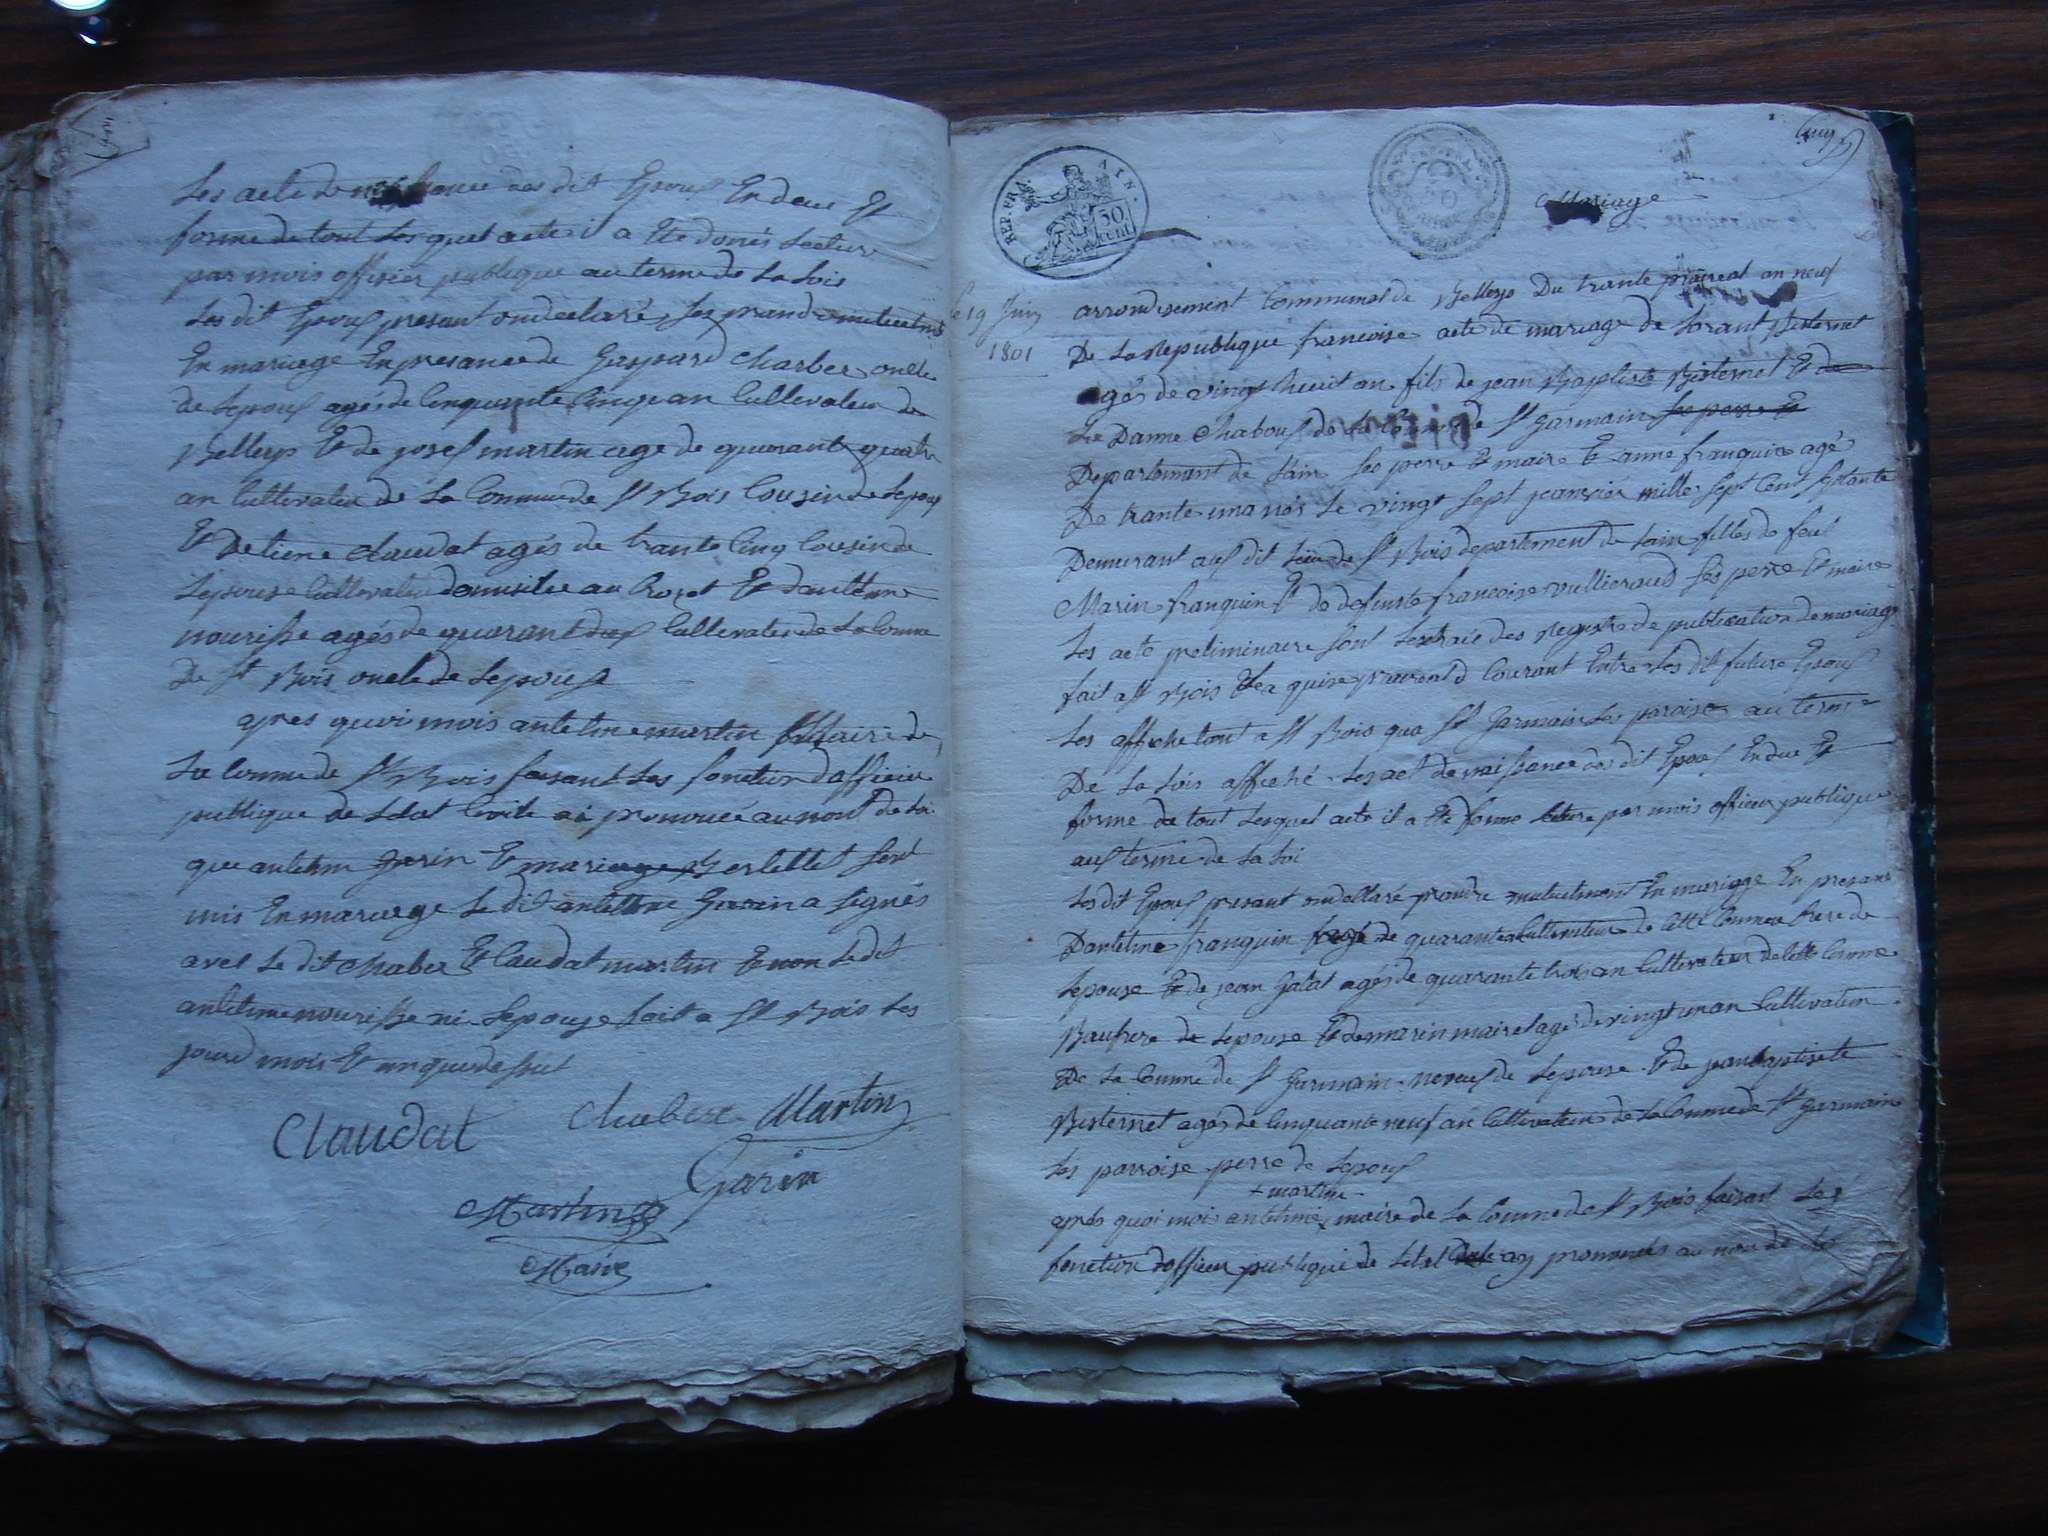 Les acte de naissance des dit Epous En deue Et
forme de tout Les quel acte il a Ete donés Lecture
par mois officier publique au terme de La Lois
Les dit Epous present on declaré Ses prandre mutuelment
En mariage En presance de Gaspard Charber oncle
de Lepous agés de Cinquante Cinq an Cultevateur de
Belleys Et de josef martin age de quarante quatre
an Cultevateur de La Commune de St Bois Cousin de Lepous
Et Detiene Claudat agés de trante Cinq Cousin de
Lepouse Cultevateur domicilié au Et dantelme
nourisse agés de quarant Cultevateur de La Comune
De St Bois oncle de Lepouse
apres quoi mois antelme martin Maire de
La Comune de St Bois faisant Les fonction dofficier
publique de Letat Civile ai prononcé au nom de Loi
que antelme Garin Et mariage Berlettet Sont
unis En mariage Le dit antelme Garin a Signés
avec Le dit Chaber Et Claudat martin Et non Le dit
antelme nourisse ni Lepouse fait a St Bois Les
jours mois Et an que desseut
Claudat Charber Martin
Garin
Martin
Maire
REP. FRA. AIN
50 Cent
Mariage
Le 19 Juin
1801
arrondisement Communal de Belleys Du trante praireal an neuf
De La Republique francoise acte de mariage de Lorant Bisternet
agés de vingt huit an fils de jean Baptiste Bisternet Et de
La Danne Chabous de La Comune de St Garmain
Departement de Lain Ses perre Et maire Et anne franquin agé
De trante una nés Le vingt Sept jeanvier mille Sept Cent Setante
Demurant aus dit Lieu de St Bois departement de Lain filles de feu
Marin franquin Et de defunte francoise vullieraud Ses perre Et maire
Les acte preliminaire Sont Lextrais des Registre de publication de mariage
fait a St Bois Le quise prareald Courant Entre Les dit future Epous
Les affiche tant a St Bois qua St Garmain Les paroise au terme
De La Lois affiché Les act de naissance des dit Epous En due Et
forme de tout Lesquel acte il a Eté donne Lecture par mois officier publique
aus terme de La Loi
Les dit Epous present on dellaré prandre mutuelment En mariage En presans
Dantelme franquin agé de quarante Cultevateur de Cette Comune frere de
Lepouse Et de jean Galat agés de quarante trois an Cultevateur de Cette Comune
Baufrere de Lepouse Et de marin mairet agé de vingt un an Cultevateur
De La Comune de St Garmain neveus de Lepouse Et de jean baptiste
Bisternet agés de Cinquante neuf an Cultevateur de La Comune de St Garmain
Les parroise perre de Lepous
+ martin
aprés quoi mois antelme maire de La Comune de St Bois faisant Les
fonction dofficier publique de Letat Civile ay prononcés au nom de La